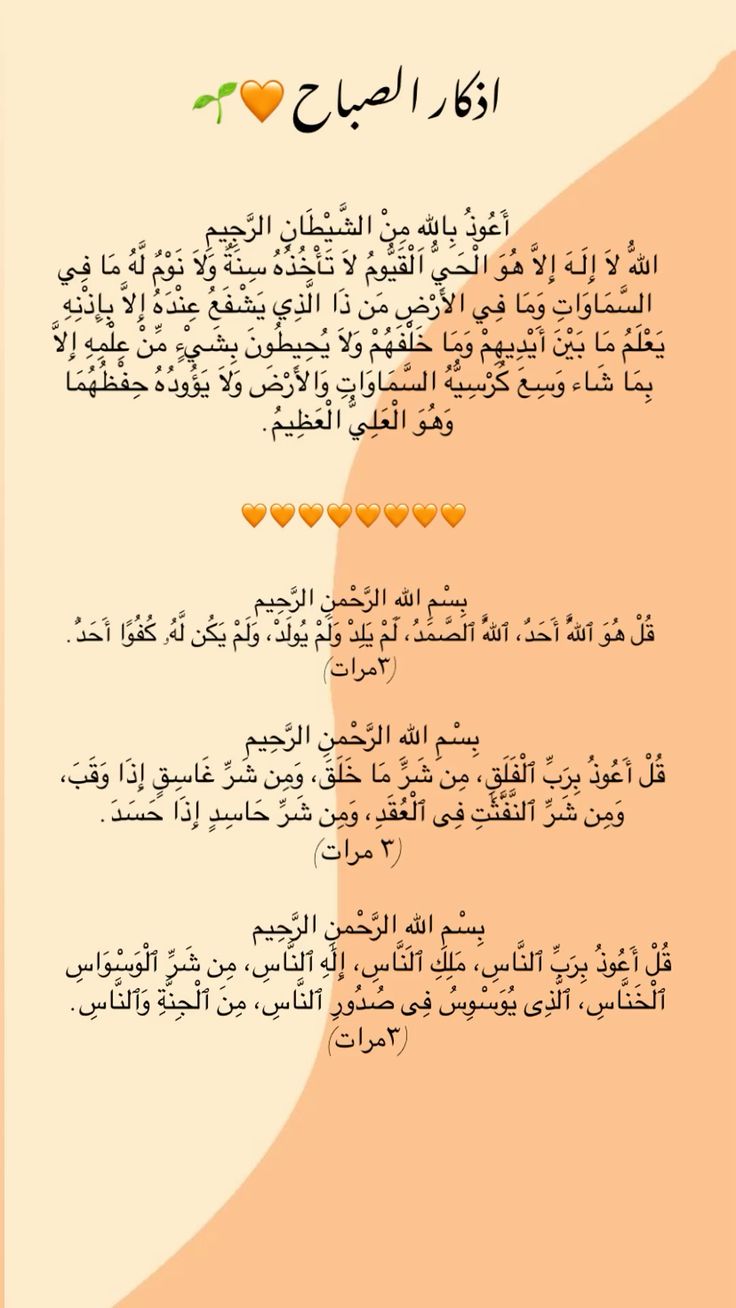 اذكار الصباح 🧡🌱
أَعُوذُ بِاللهِ مِنْ الشَّيْطَانِ الرَّجِيمِ
اللهُ لاَ إِلَـهَ إِلاَّ هُوَ الْحَيُّ الْقَيُّومُ لاَ تَأْخُذُهُ سِنَةٌ وَلاَ نَوْمٌ لَّهُ مَا فِي
السَّمَاوَاتِ وَمَا فِي الأَرْضِ مَن ذَا الَّذِي يَشْفَعُ عِنْدَهُ إِلاَّ بِإِذْنِهِ
يَعْلَمُ مَا بَيْنَ أَيْدِيهِمْ وَمَا خَلْفَهُمْ وَلاَ يُحِيطُونَ بِشَيْءٍ مِّنْ عِلْمِهِ إِلاَّ
بِمَا شَاء وَسِعَ كُرْسِيُّهُ السَّمَاوَاتِ وَالأَرْضَ وَلاَ يَؤُودُهُ حِفْظُهُمَا
وَهُوَ الْعَلِيُّ الْعَظِيمُ.
🧡🧡🧡🧡🧡🧡🧡🧡
بِسْمِ اللهِ الرَّحْمنِ الرَّحِيم
قُلْ هُوَ ٱللهُ أَحَدٌ، ٱللهُ ٱلصَّمَدُ، لَمْ يَلِدْ وَلَمْ يُولَدْ، وَلَمْ يَكُن لَّهُۥ كُفُوًا أَحَدٌ.
(٣مرات)
بِسْمِ اللهِ الرَّحْمنِ الرَّحِيم
قُلْ أَعُوذُ بِرَبِّ ٱلْفَلَقِ، مِن شَرِّ مَا خَلَقَ، وَمِن شَرِّ غَاسِقٍ إِذَا وَقَبَ،
وَمِن شَرِّ ٱلنَّفَّٰثَٰتِ فِى ٱلْعُقَدِ، وَمِن شَرِّ حَاسِدٍ إِذَا حَسَدَ.
(٣ مرات)
بِسْمِ اللهِ الرَّحْمنِ الرَّحِيم
قُلْ أَعُوذُ بِرَبِّ ٱلنَّاسِ، مَلِكِ ٱلنَّاسِ، إِلَٰهِ ٱلنَّاسِ، مِن شَرِّ ٱلْوَسْوَاسِ
ٱلْخَنَّاسِ، ٱلَّذِى يُوَسْوِسُ فِى صُدُورِ ٱلنَّاسِ، مِنَ ٱلْجِنَّةِ وَٱلنَّاسِ.
(٣مرات)